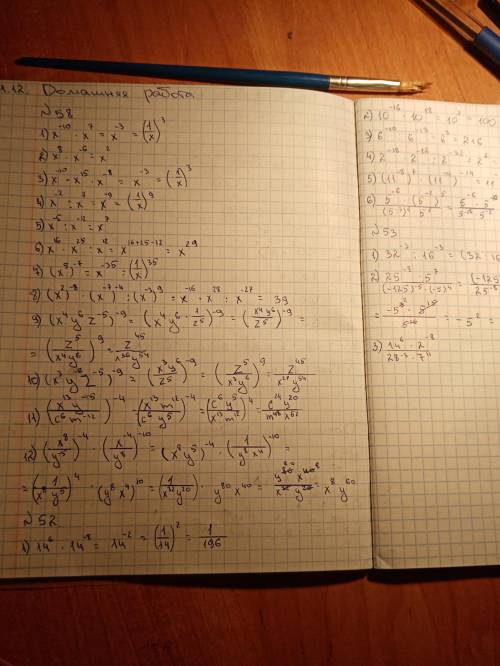 1.12. Домашняя работа
№58
1) x^-10 · x^7 = x^-3 = (1/x)^3
2) x^8 · x^-6 = x^2
3) x^-10 · x^15 · x^-8 = x^-3 = (1/x)^3
4) x^-2 : x^7 = x^-9 = (1/x)^9
5) x^-5 : x^-12 = x^7
6) x^16 · x^25 : x^12 = x^16+25-12 = x^29
7) (x^5)^-7 = x^-35 = (1/x)^35
8) (x^2)^-8 · (x^-7)^-4 : (x^-3)^9 = x^-16 · x^28 : x^-27 = 39
9) (x^4 y^6 z^-5)^-9 = (x^4 y^6 · 1/z^5)^-9 = (x^4 y^6/z^5)^-9 =
= (z^5/x^4 y^6)^9 = z^45/x^36 y^54
10) (x^3 y^6 z^-5)^-9 = (x^3 y^6/z^5)^-9 = (z^5/x^3 y^6)^9 = z^45/x^27 y^54
11) (x^13 y^-5/c^6 m^-12)^-4 = (x^13 m^12/c^6 y^5)^-4 = (c^6 y^5/x^13 m^12)^4 = c^24 y^20/m^48 x^52
12) (x^8/y^-5)^-4 · (x^-4/y^8)^-10 = (x^8 y^5)^-4 · (1/y^8 x^4)^-10 =
= (1/x^8 y^5)^4 · (y^8 x^4)^10 = (1/x^32 y^20) · y^80 x^40 = y^80 x^40/x^32 y^20 = x^8 y^60
№52
1) 14^6 · 14^-8 = 14^-2 = (1/14)^2 = 1/196
2) 10^-16 · 10^18 = 10^2 = 100
3) 6^-10 · 6^13 = 6^3 = 216
№53
1) 32^-3 : 16^-3 = (32 : 16
2) 25^-3 · 5^7/(-125)^-5 · (-5)^4 = (-125
= - 5^2
3) 14^6 · 2^-8/28^-3 · 7^11